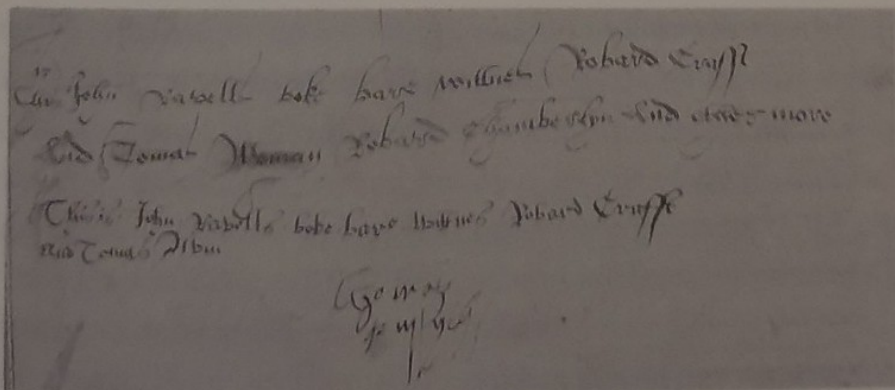 This John Varvells boke bare wittnes Robard Crafft
And Tomas Woman Robard Chamberlyn And others more
This is John Varvells boke bare wittnes Robard Crafft
And Tomas